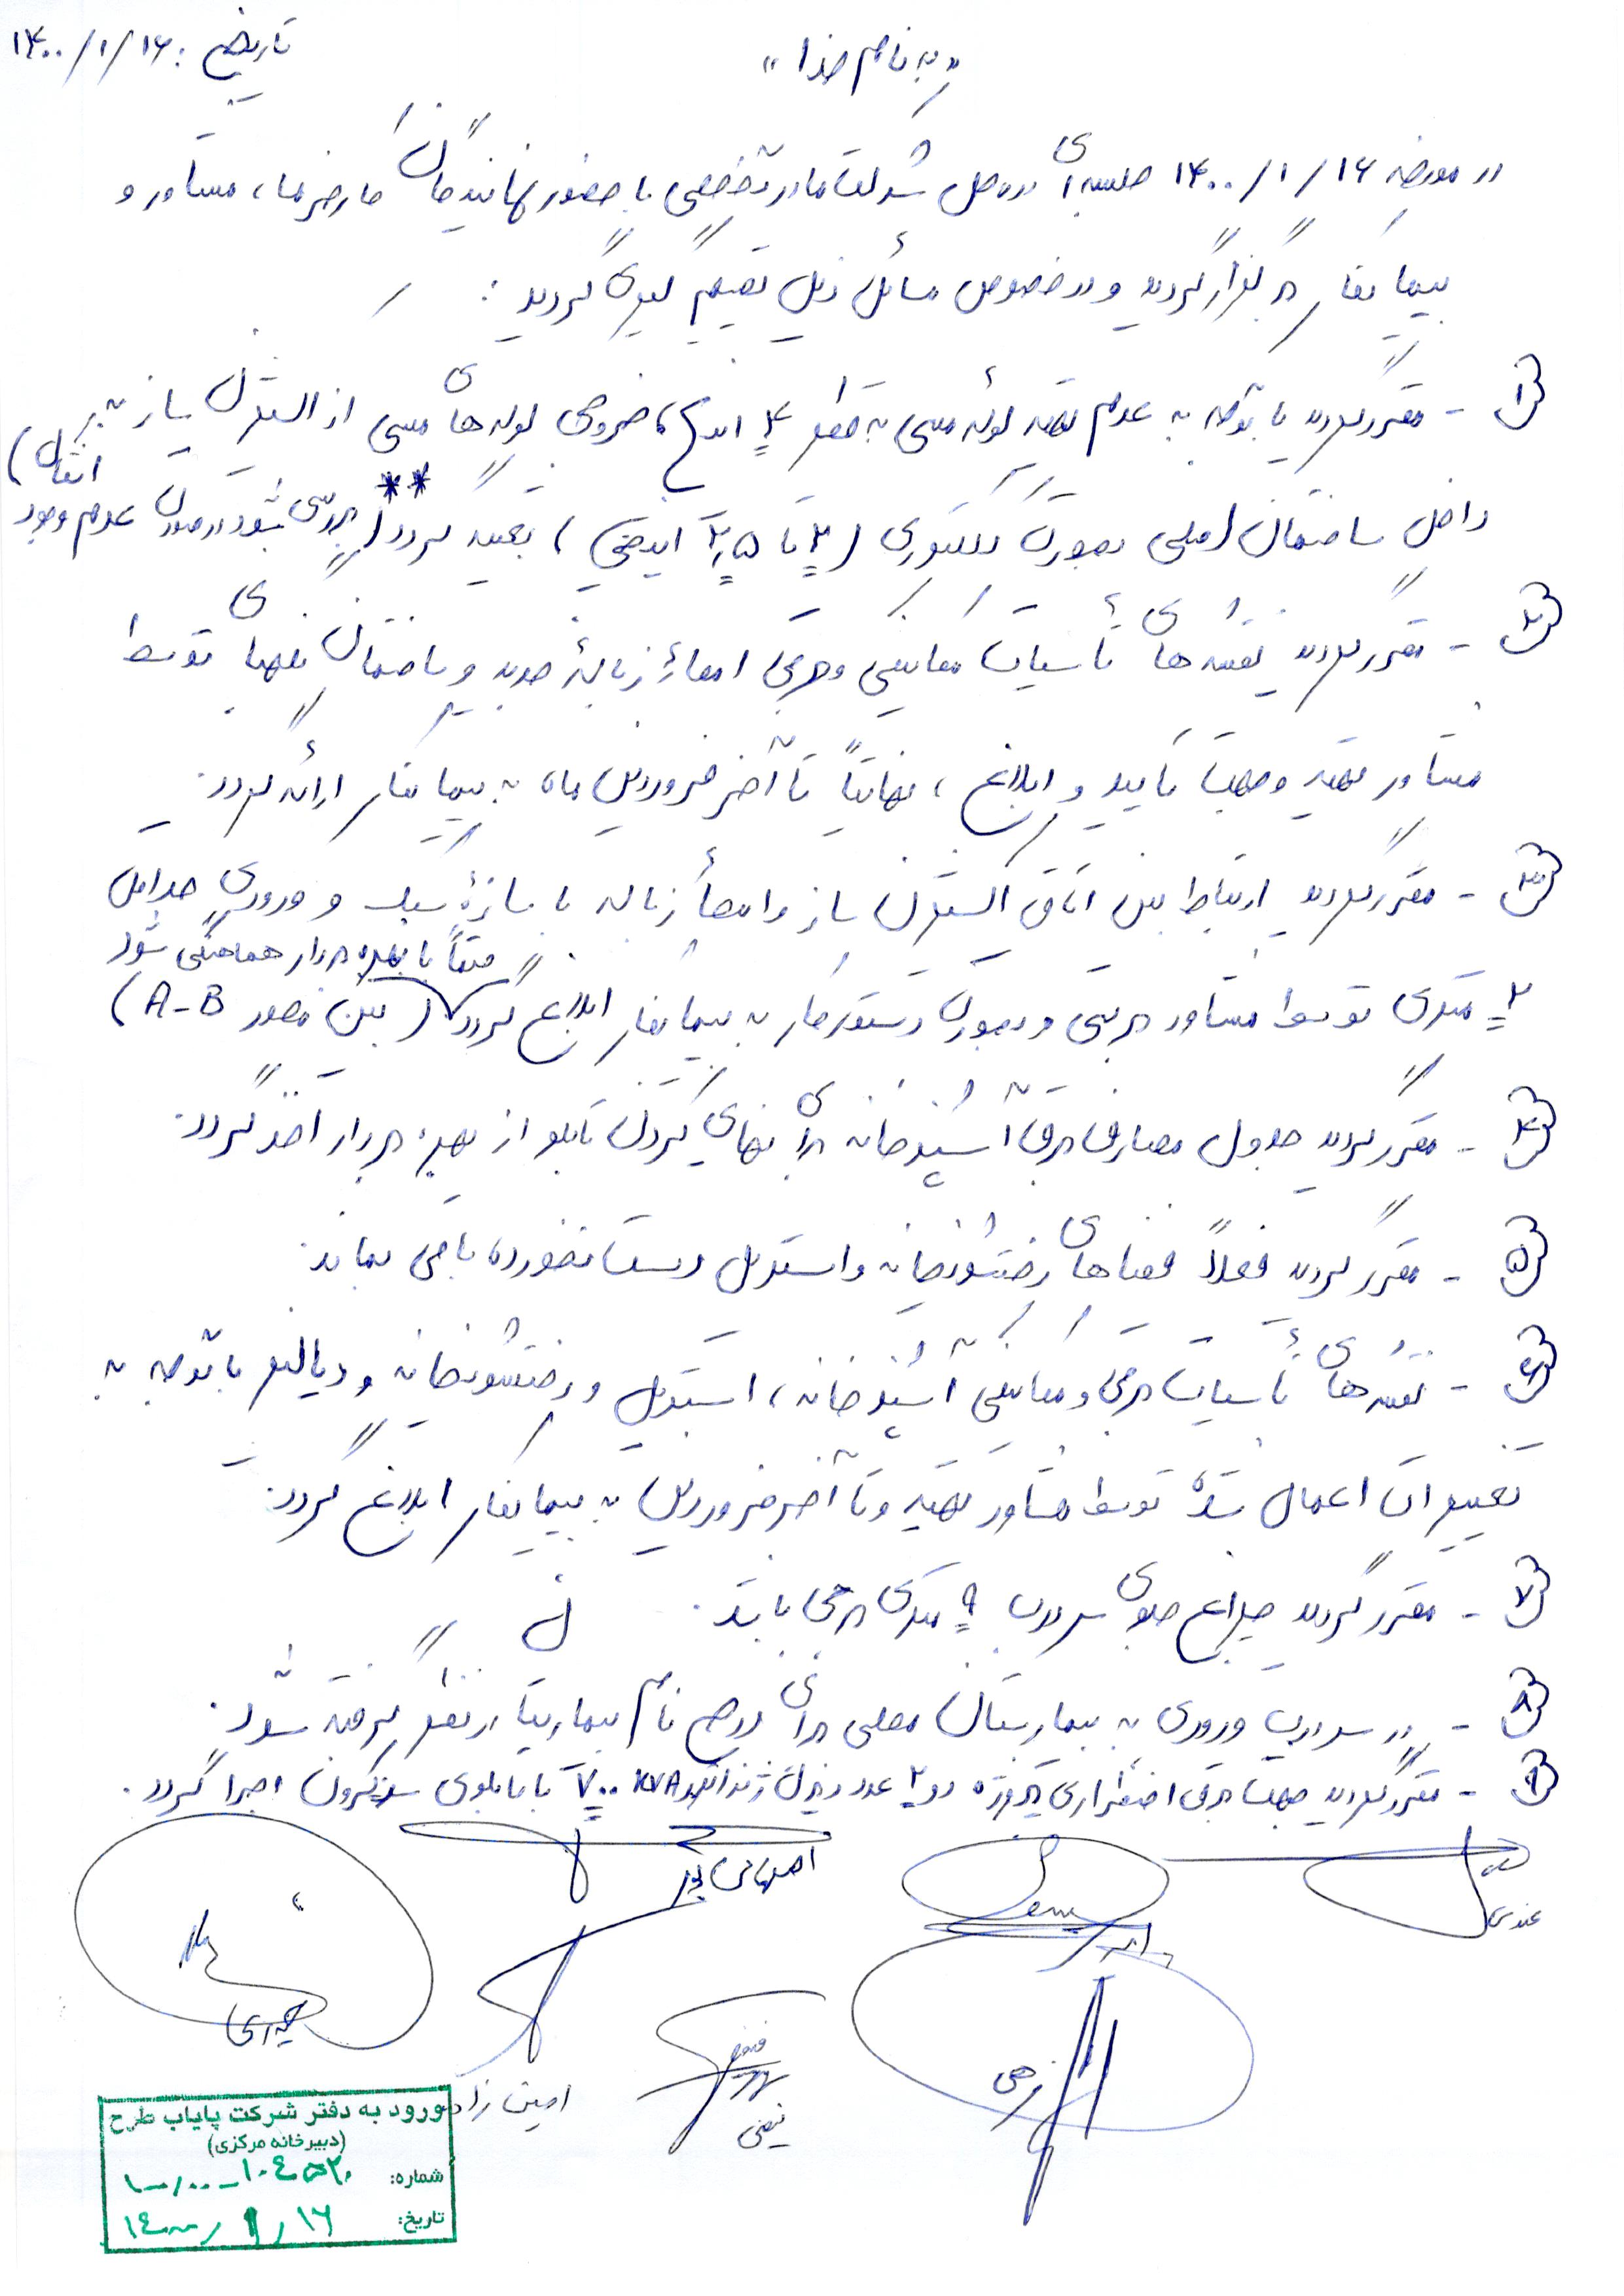 تاریخ: ۱۴۰۰/۱/۱۶
«به نام خدا»
در مورخه ۱۴۰۰/۱/۱۶ جلسه‌ای در محل شرکت مادر تخصصی با حضور نمایندگان کارفرما، مشاور و
پیمانکار برگزار گردید و در خصوص مسائل ذیل تصمیم گیری گردید:
۱- مقرر گردید با توجه به عدم تهیه لوله مسی به قطر ۴ اینچ، خروجی لوله های مسی از اکسیژن ساز به
داخل ساختمان اصلی بصورت کلکتوری (۲ تا ۲٫۵ اینچی) تعبیه گردد (** بررسی شود در صورت عدم وجود اشکال)
۲- مقرر گردید نقشه های تأسیسات مکانیکی و برقی امحاء زباله جدید و ساختمان نگهبانی توسط
مشاور تهیه و جهت تأیید و ابلاغ، نهایتاً تا آخر فروردین ماه به پیمانکار ارائه گردد.
۳- مقرر گردید ارتباط بین اتاق اکسیژن ساز و امحاء زباله با سازهٔ سبک و ورودی حداقل
۲ متری توسط مشاور بررسی و بصورت دستور کار به پیمانکار ابلاغ گردد (بین محور A-B)
حتماً با بهره بردار هماهنگی شود
۴- مقرر گردید جدول مصارف برق آشپزخانه برای نهایی کردن تابلو از بهره بردار اخذ گردد.
۵- مقرر گردید فعلاً فضاهای رختشویخانه و استریل دست نخورده باقی بماند.
۶- نقشه های تأسیسات برقی و مکانیکی آشپزخانه، استریل و رختشویخانه و دیالیز با توجه به
تغییرات اعمال شده توسط مشاور تهیه و تا آخر فروردین به پیمانکار ابلاغ گردد.
۷- مقرر گردید چراغ جلوی سردرب ۹ متری برقی باشد.
۸- در سردرب ورودی به بیمارستان محلی برای درج نام بیمارستان در نظر گرفته شود.
۹- مقرر گردید جهت برق اضطراری پروژه دو ۲ عدد دیزل ژنراتور ۷۰۰ KVA با تابلوی سنکرون اجرا گردد.
امین زاده
حیدری
ورود به دفتر شرکت پایاب طرح
(دبیرخانه مرکزی)
شماره:
تاریخ: ۱۴۰۰/۱/۱۶